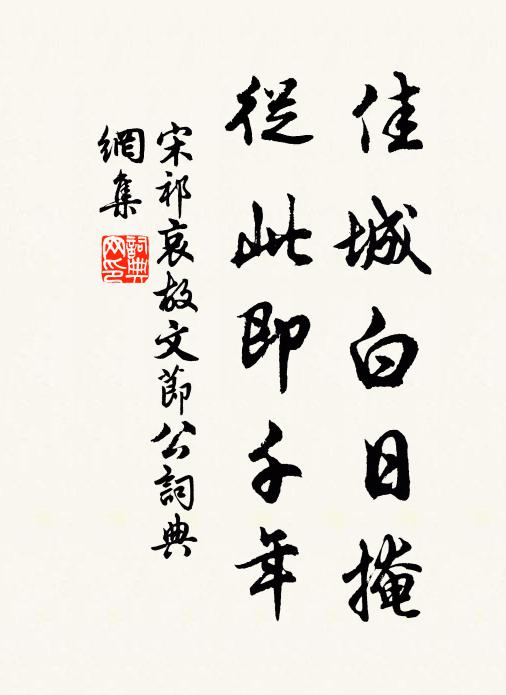 佳城白日掩
從此即千年
宋祁哀故文節公詞典
網集
詞典网印